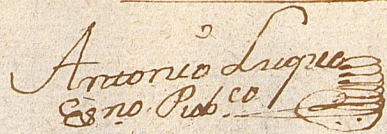 Antonio Luque
Esno. Pubco